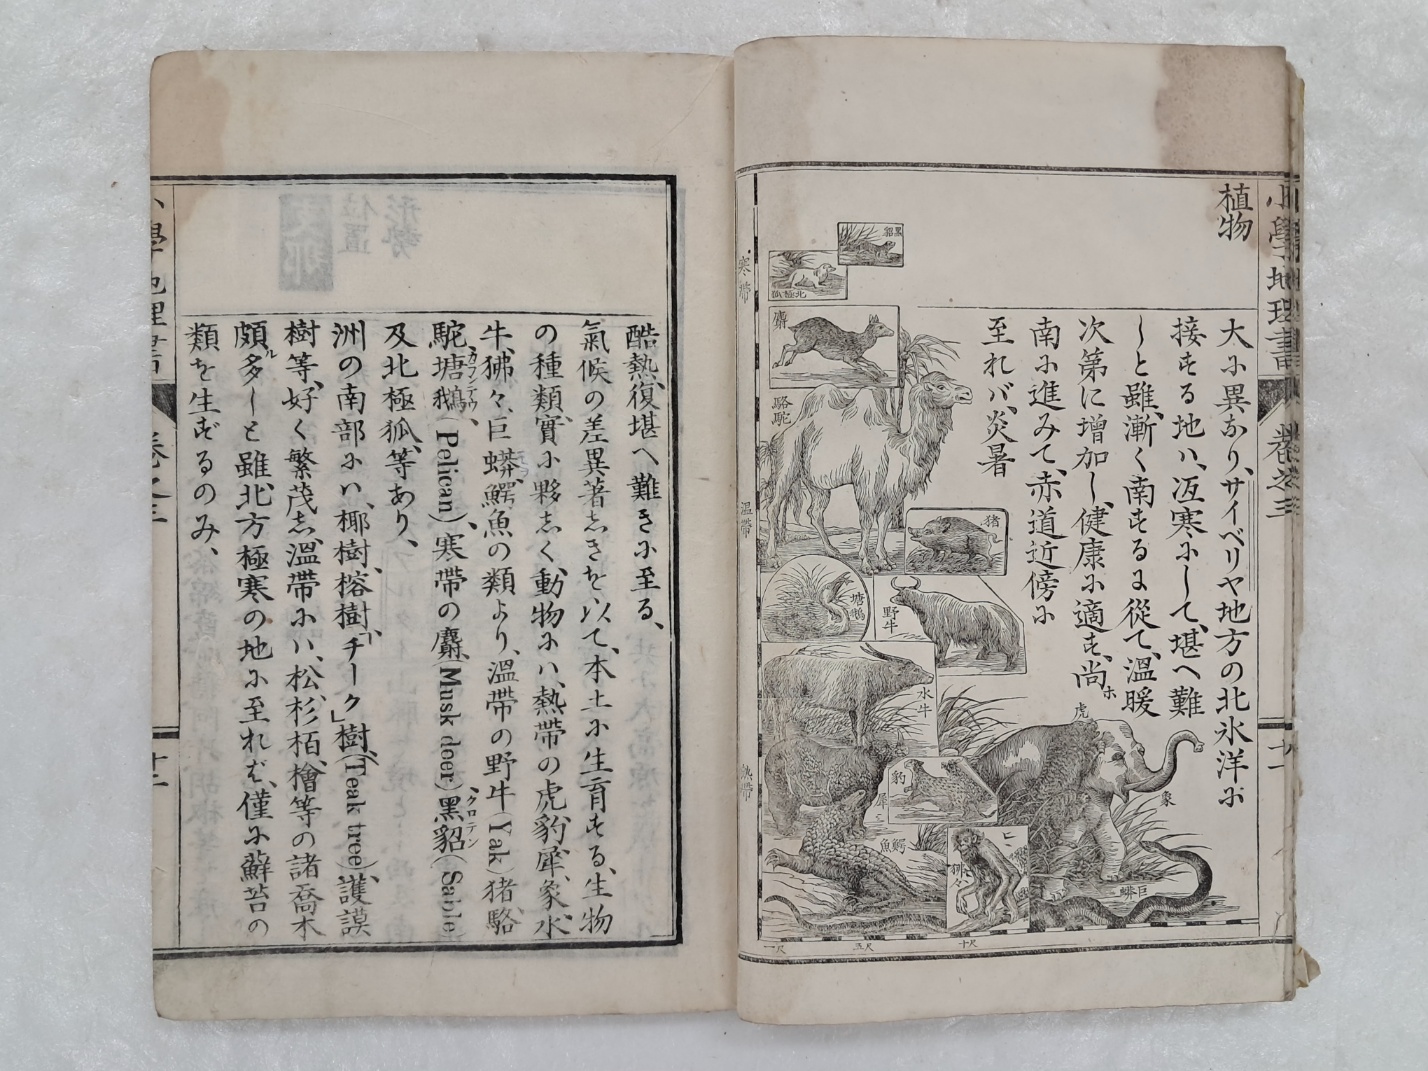 植物
大に異なり、サイベリヤ地方の北氷洋に
接する地ハ、沍寒にして、堪へ難
しと雖、漸く南するに從て、溫暖
次第に增加し、健康に適す、尚ホ
南に進みて、赤道近傍に
至れバ、炎暑
寒帶
溫帶
熱帶
黑貂
北極狐
麝
駱駝
猪
塘鵝
野牛
水牛
虎
象
豹
犀
鰐魚
狒々
巨蟒
一尺
五尺
十尺
小學地理書
卷之三
十一
酷熱、復堪へ難きに至る、
氣候の差異著しきを以て、本土に生育する、生物
の種類、實に夥しく、動物にハ、熱帶の虎、豹、犀、象、水
牛、狒々、巨蟒、鰐魚の類より、溫帶の野牛(Yak)猪、駱
駝、塘鵝(ガランテウ)、(Pelican)、寒帶の麝(Musk deer)黑貂(クロテン)(Sable)
及北極狐、等あり、
洲の南部にハ、椰樹、榕樹、「チーク」樹、(Teak tree)、護謨
樹等、好く繁茂し、溫帶にハ、松、杉、栢、檜等の諸喬木
頗ル多しと雖、北方極寒の地に至れば、僅に蘚苔の
類を生ずるのみ、
小學地理書
卷之三
十二